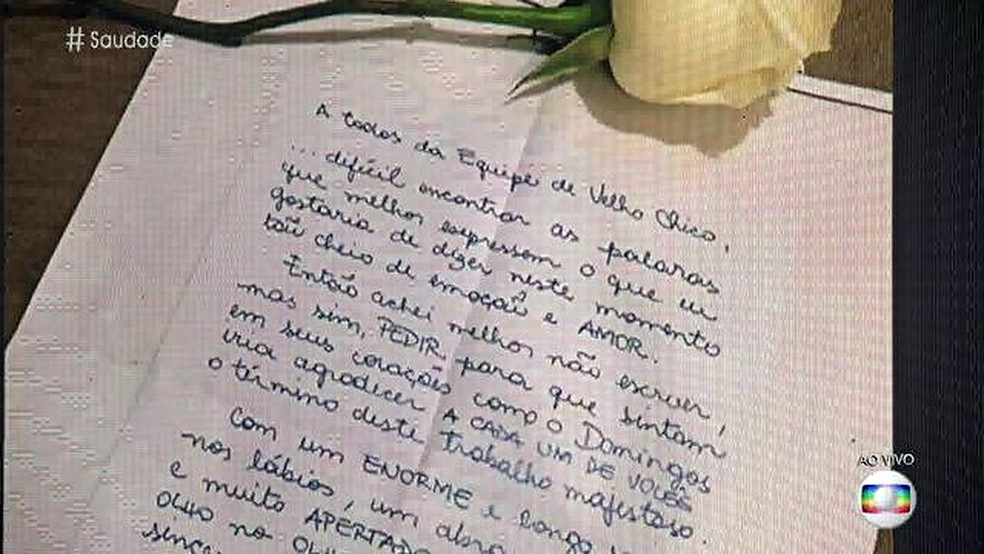 # Saudade
A todos da Equipe de Velho Chico,
... difícil encontrar as palavras
que melhor expressem o que eu
gostaria de dizer neste momento
tão cheio de emoção e AMOR.
Então achei melhor não escrever,
mas sim, PEDIR para que sintam
em seus corações como o Domingos
iria agradecer A CADA UM DE VOCÊS
o término deste trabalho majestoso.
Com um ENORME e longo
nos lábios, um
e muito APERTADO
OLHO no
AO VIVO